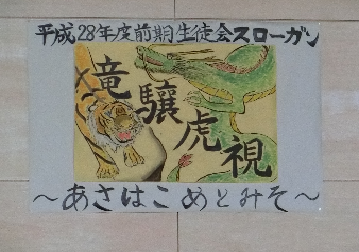 平成28年度前期生徒会スローガン
竜驤虎視
～あさはこめとみそ～